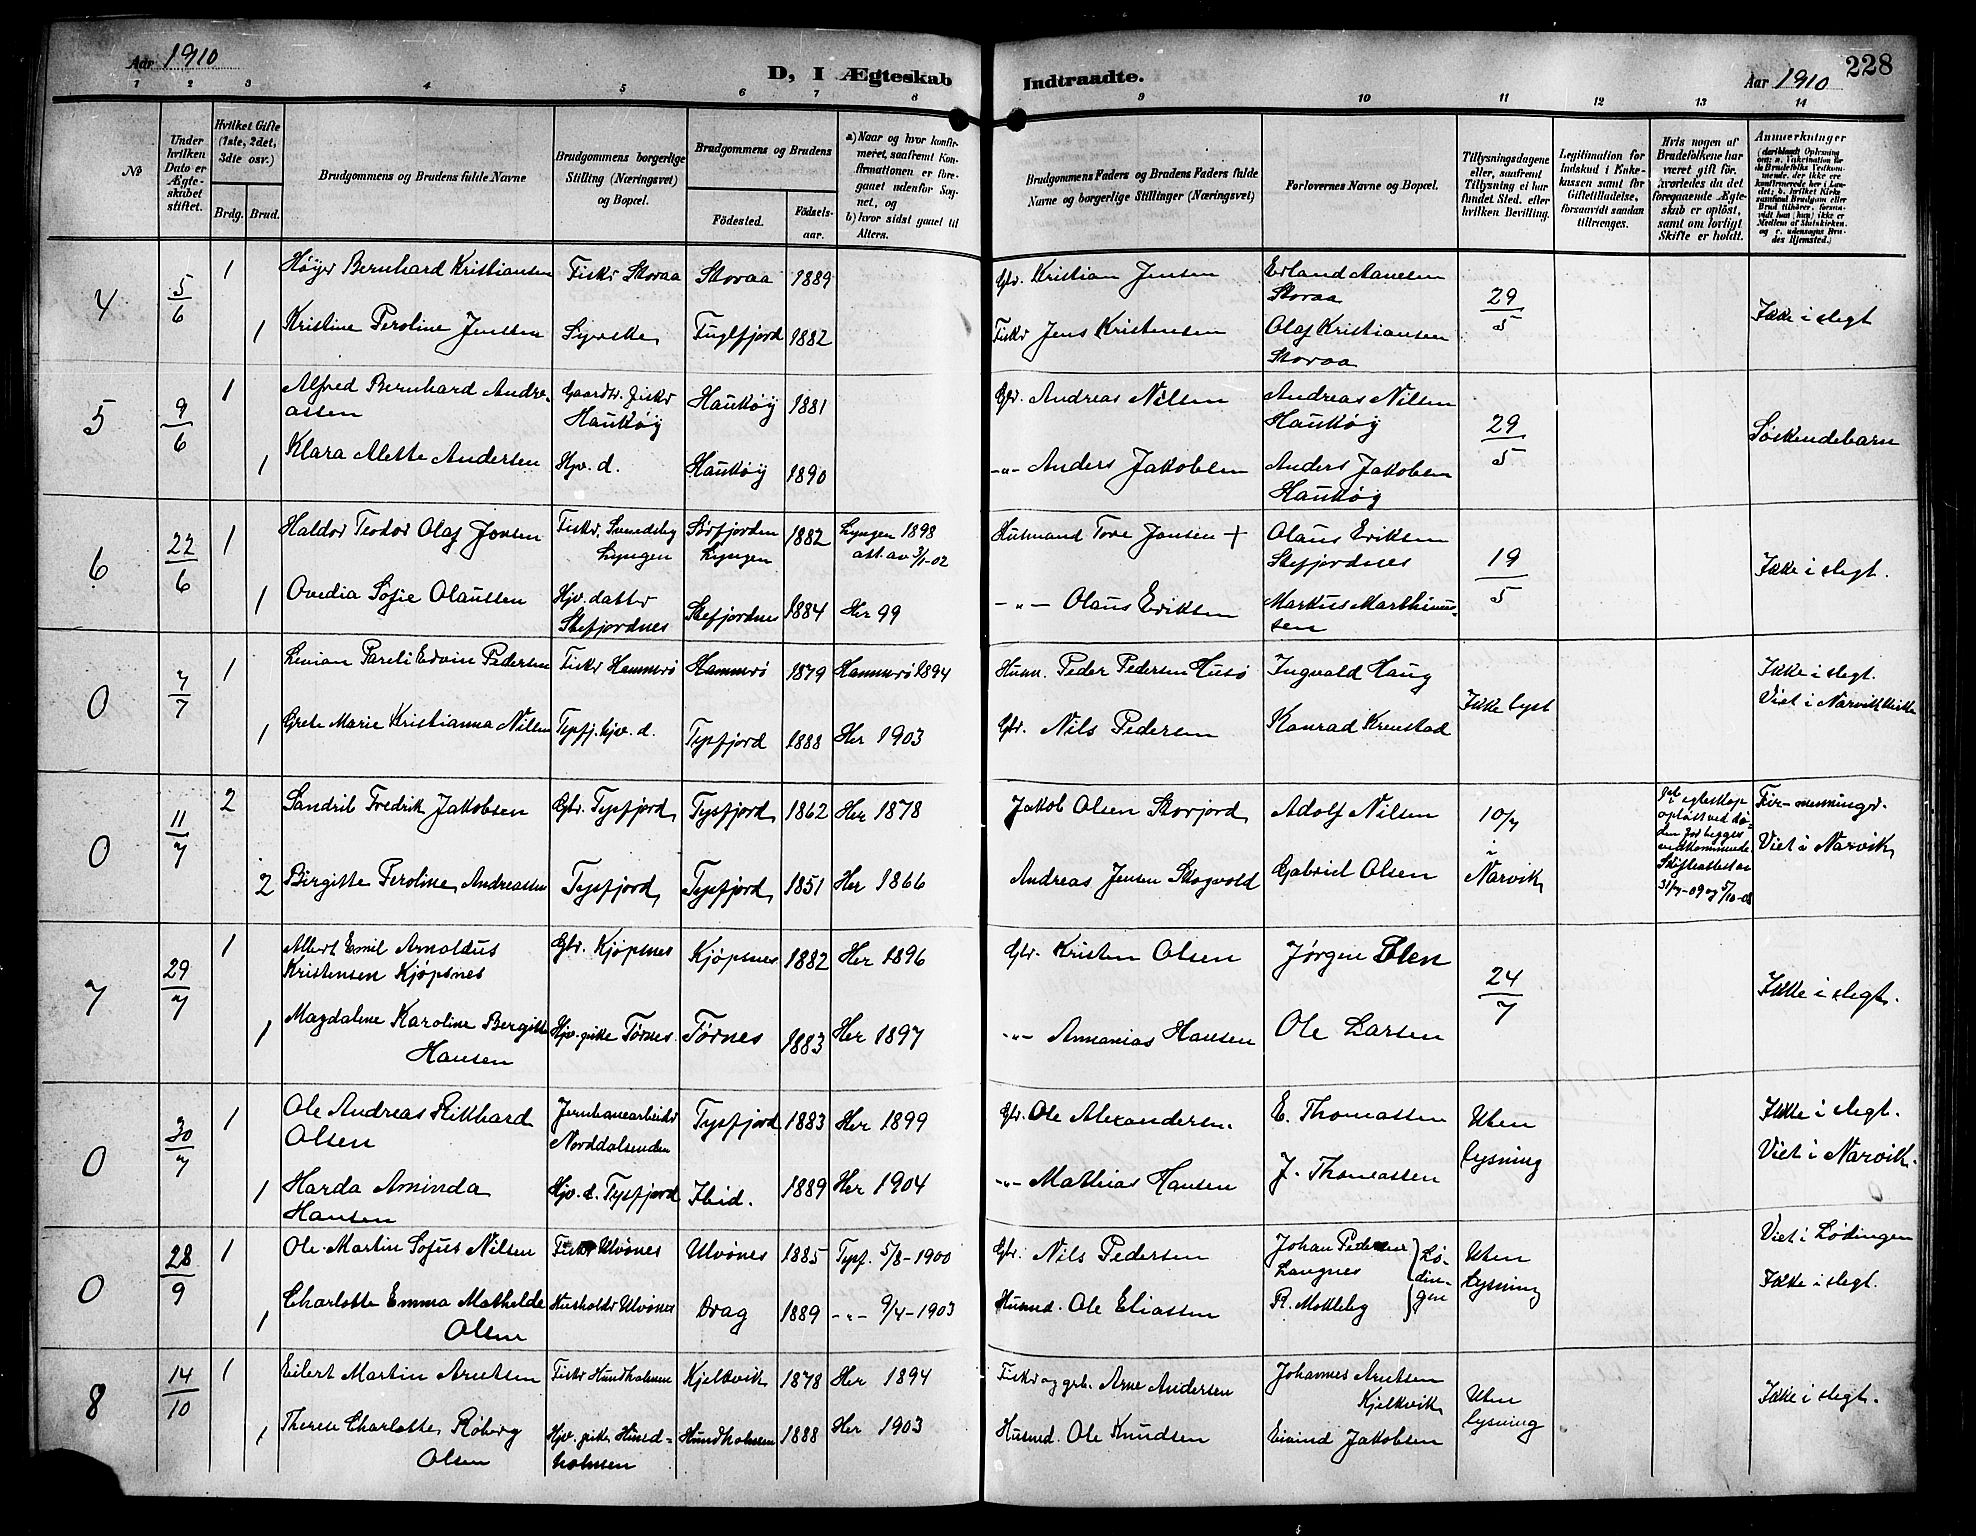 Aar 1910
D, I Ægteskab Indtraadte.
Aar 1910
228
1 2 3 4 5 6 7 8 9 10 11 12 13 14
No
Under hvilken Dato er Ægteskabet stiftet.
Hvilket Gifte (1ste, 2det, 3die osv.)
Brdg. Brud.
Brudgommens og Brudens fulde Navne
Brudgommens borgerlige Stilling (Næringsvei) og Bopæl.
Brudgommens og Brudens
Födested.
Födsels-aar.
a) Naar og hvor konfirmeret, saafremt Konfirmationen er foregaaet udenfor Sognet, og
b) hvor sidst gaaet til Alters.
Brudgommens Faders og Brudens Faders fulde Navne og borgerlige Stillinger (Næringsvei)
Forlovernes Navne og Bopæl.
Tillysningsdagene eller, saafremt Tillysning ei har fundet Sted, efter hvilken Bevilling.
Legitimation for Indskud i Enkekassen samt for Giftetilladelse, forsaavidt saadan tiltrænges.
Hvis nogen af Brudefolkene har været gift før, hvorledes da det foregaaende Ægteskab er opløst, samt om lovligt Skifte er holdt.
Anmerkninger
4 5/6 1 Høyer Bernhard Kristiansen Fiskr Storaa Storaa 1889 Gbr. Kristian Jensen Erland Aanesen Storaa 29/5 Ikke i slegt
1 Kristine Peroline Jensen Syerske Fuglfjord 1882 Fiskr Jens Kristensen Olaf Kristiansen Storaa
5 9/6 1 Alfred Bernhard Andreassen Gaardbr. fiskr Haukøy Haukøy 1881 Gbr. Andreas Nilsen Andreas Nilsen Haukøy 29/5 Søskendebarn
1 Klara Alette Andersen Hjv. d. Haukøy 1890 -"- Anders Jakobsen Anders Jakobsen Haukøy
6 22/6 1 Haldor Teodor Olaf Jensen Fiskr, Svendsby Lyngen Sørfjorden Lyngen 1882 Lyngen 1898 att. av 3/1-02 Husmand Tore Jansen + Olaus Eriksen Stefjordnes 19/5 Ikke i slegt.
1 Ovedia Sofie Olaussen Hjv. datter Stefjordnes Stefjordnes 1884 Her 99 -"- Olaus Eriksen Markus Marthinussen
0 7/7 1 Pareli Edvin Pedersen Fiskr Hammerø Hammerø 1879 Hammerø 1894 Husm. Peder Pedersen Husø Ingvald Haug Ikke lyst Ikke i slegt. Viet i Narvik kirke
1 Grete Marie Kristianna Nilsen Tysfj. hjv. d. Tysfjord 1888 Her 1903 Gbr. Nils Pedersen Konrad Krenstad
0 11/7 2 Sandril Fredrik Jakobsen Gbr. Tysfjord Tysfjord 1862 Her 1878 Jakob Olsen Storjord Adolf Nilsen 10/7 i Narvik egteskap opløst ved døden for begges vedkommende. Skifteattest av 31/7-09 og 5/10-08 Fir-menningr. Viet i Narvik
2 Birgitte Peroline Andreassen Tysfjord Tysfjord 1851 Her 1866 Andreas Jensen Skogvold Gabriel Olsen
7 29/7 1 Albert Emil Arnoldus Kristensen Kjøpsnes Gbr. Kjøpsnes Kjøpsnes 1882 Her 1896 Gbr. Kristen Olsen Jørgen Olsen 24/7 Ikke i slegt.
1 Magdalene Karoline Bergitte Hansen Hjv. pike Tørnes. Tørnes 1883 Her 1897 -"- Annanias Hansen Ole Larsen
0 30/7 1 Ole Andreas Rikkhard Olsen Jernbanearbeider Norddalsenden Tysfjord 1883 Her 1899 Gbr. Ole Alexandersen. E. Thomassen Uten lysning Ikke i slegt. Viet i Narvik.
1 Harda Aminda Hansen Hjv. d. Tysfjord Ibid. 1889 Her 1904 -"- Mathias Hansen J. Thomassen
0 28/9 1 Ole Martin Sofus Nilsen Fiskr Ulvönes Ulvönes 1885 Tysf. 5/8-1900 Gbr. Nils Pedersen Johan Pedersen Langnes Lødingen Uten lysning Viet i Lødingen Ikke i slegt.
1 Charlotte Emma Mathelde Olsen Husholdr Ulvönes Drag 1889 -"- 9/4-1903 Husmd. Ole Eliassen R. Mokleby
8 14/10 1 Eilert Martin Arntsen Fiskr Hundholmen Kjelkvik 1878 Her 1894 Fiskr og grb. Arne Andersen Johannes Arntsen Kjelkvik Uten lysning Ikke i slegt.
1 Therese Charlotte Røberg Olsen Hjv. pike Hundholmen Hundholmen 1888 Her 1903 Husmd. Ole Knudsen Eivind Jakobsen